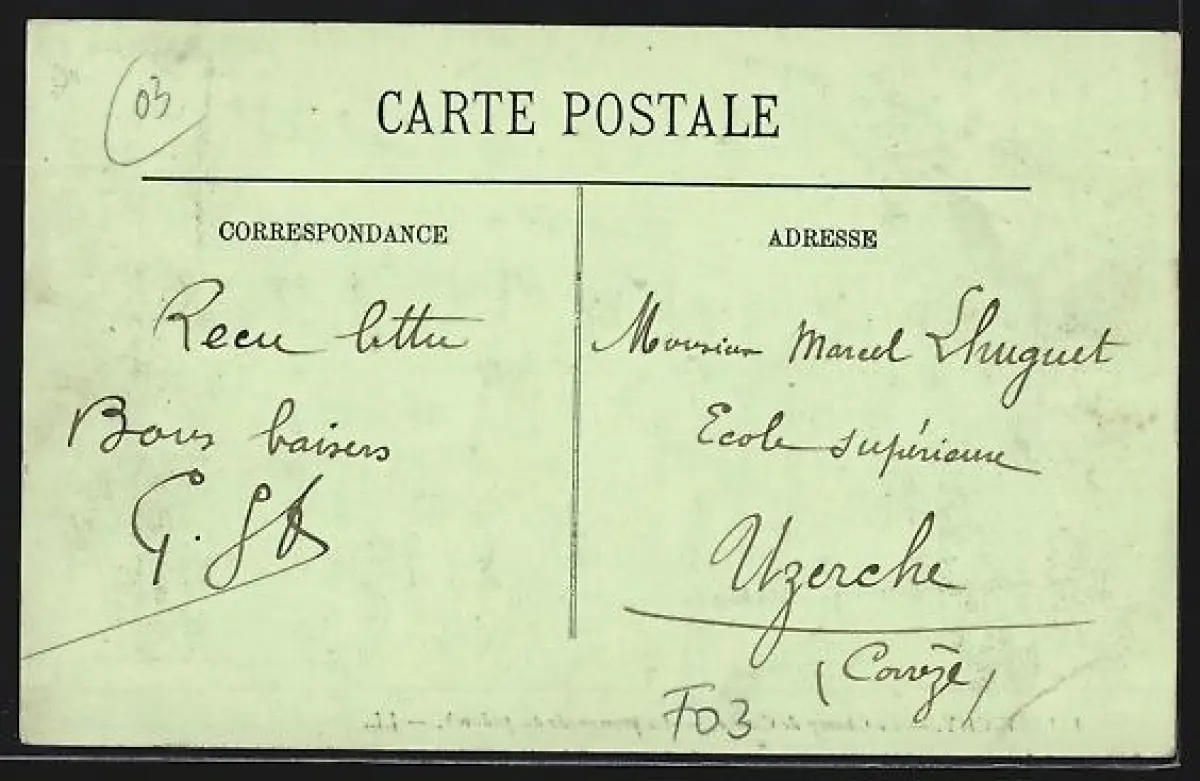 03
CARTE POSTALE
CORRESPONDANCE
Recu lettre
Bons baisers
ADRESSE
Monsieur Marcel Lhuguet
Ecole supérieure
Uzerche
(Corrèze)
F03